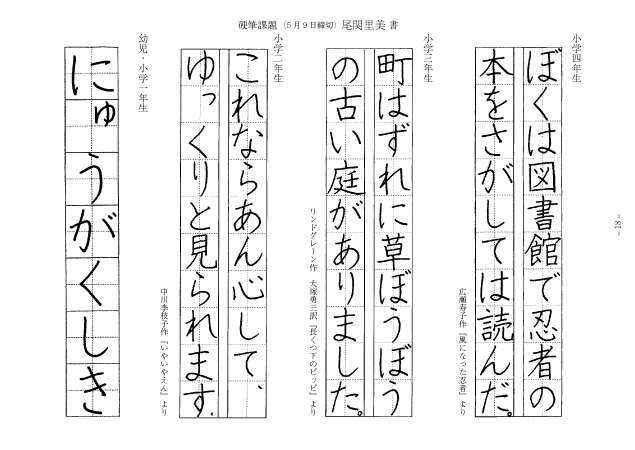 硬筆課題（５月９日締切）尾関里美 書
小学四年生
ぼくは図書館で忍者の
本をさがしては読んだ。
広瀬寿子作『風になった忍者』より
小学三年生
町はずれに草ぼうぼう
の古い庭がありました。
リンドグレーン作 大塚勇三訳『長くつ下のピッピ』より
小学二年生
これならあん心して、
ゆっくりと見られます。
中川李枝子作『いやいやえん』より
幼児・小学一年生
にゅうがくしき